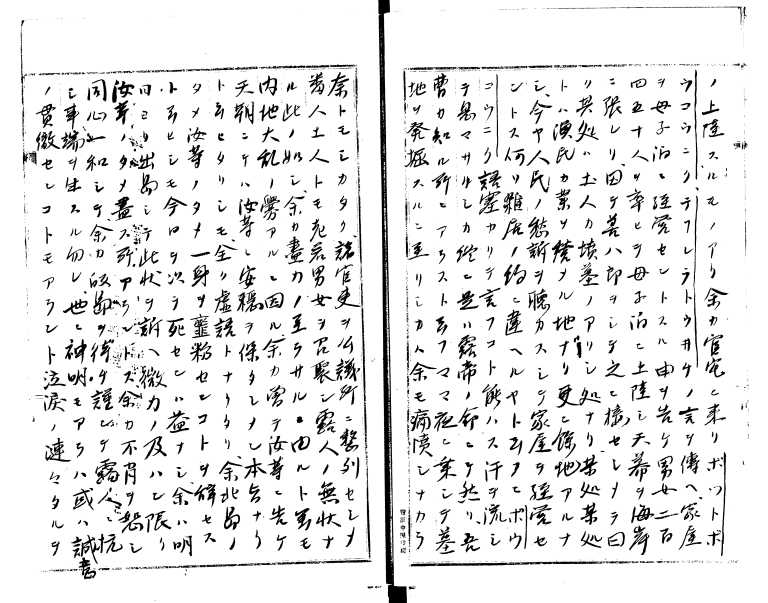 ノ上陸スルモノアリ余カ官宅ニ来リポットポ
ウコウニクデフレラトウサケノ言ヲ傳ヘ家屋
ヲ母子泊ニ経営セントスル由ヲ告ケ男女二百
四五十人ヲ率ヒテ母子泊ニ上陸シ天幕ヲ海岸
ニ張レリ因テ善八郎ヲシテ之ニ接セシメテ曰
リ其処ハ土人カ墳墓ノアリシ処ナリ某処某処
トハ漁民カ業ヲ績メル地ナリ更ニ餘地アルナ
シ今ヤ人民ノ愁訴ヲ聴カスシテ家屋ヲ経営セ
ントス何ソ雑居ノ約ニ違ヘルヤト云フニポウ
コウニク語塞カリテ言フコト能ハス汗ヲ流シ
テ居マサリシカ從ニ是ハ露帝ノ命ニテ然リ吾
曹カ知ル所ニアラスト云フママ夜ニ乗シテ墓
地ヲ発掘スルニ至リシカハ余モ痛憤シナカラ
奈トモシカタク諸官吏ヲ公議所ニ整列セシメ
蕃人土人トモ老若男女ヲ召聚シ露人ノ無状ナ
ル此ノ如シ余カ盡力ノ至ラサルニ由ルト雖モ
内地大乱ノ労アルニ因ル余カ曽テ汝等ニ告ケ
天朝ニテハ汝等ニ安穏ヲ保タシメン本旨ナリ
トニセヒタリシモ全ク虚語トナリタリ余此島ノ
タメ汝等ノタメ一身ヲ虀粉セシコトヲ辞セス
ト云ヒシモ今日ヲ以テ死セハ益ナシ余ハ明
日ヨリ出島シテ此状ヲ訴ヘ微力ノ及ハン限リ
汝等ノタメ盡ス所アラントス余カ不肖ヲ恕シ
同心一和シテ余カ皈島ヲ待テ謹シテ露人ニ抗
シ事端ヲ生スル勿レ也ニ神明モアラハ或ハ誠書
ノ貫徹セシコトモアラント泣涙ノ連々タルヲ